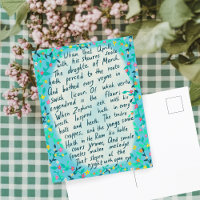 When that April
with his showres soote
The droghte of March
hath perced to the roote
And bathed every veyne in
Swich licour, Of which vertu
engendred is the flour;
When Zephirus eek with his
breeth Inspired hath in every
holt and heeth The tendre
croppes, and the yonge sonne
Hath in the Ram his halfe
cours yronne, And smale
foweles maken melodye
That slepen al the
nyght with open eye